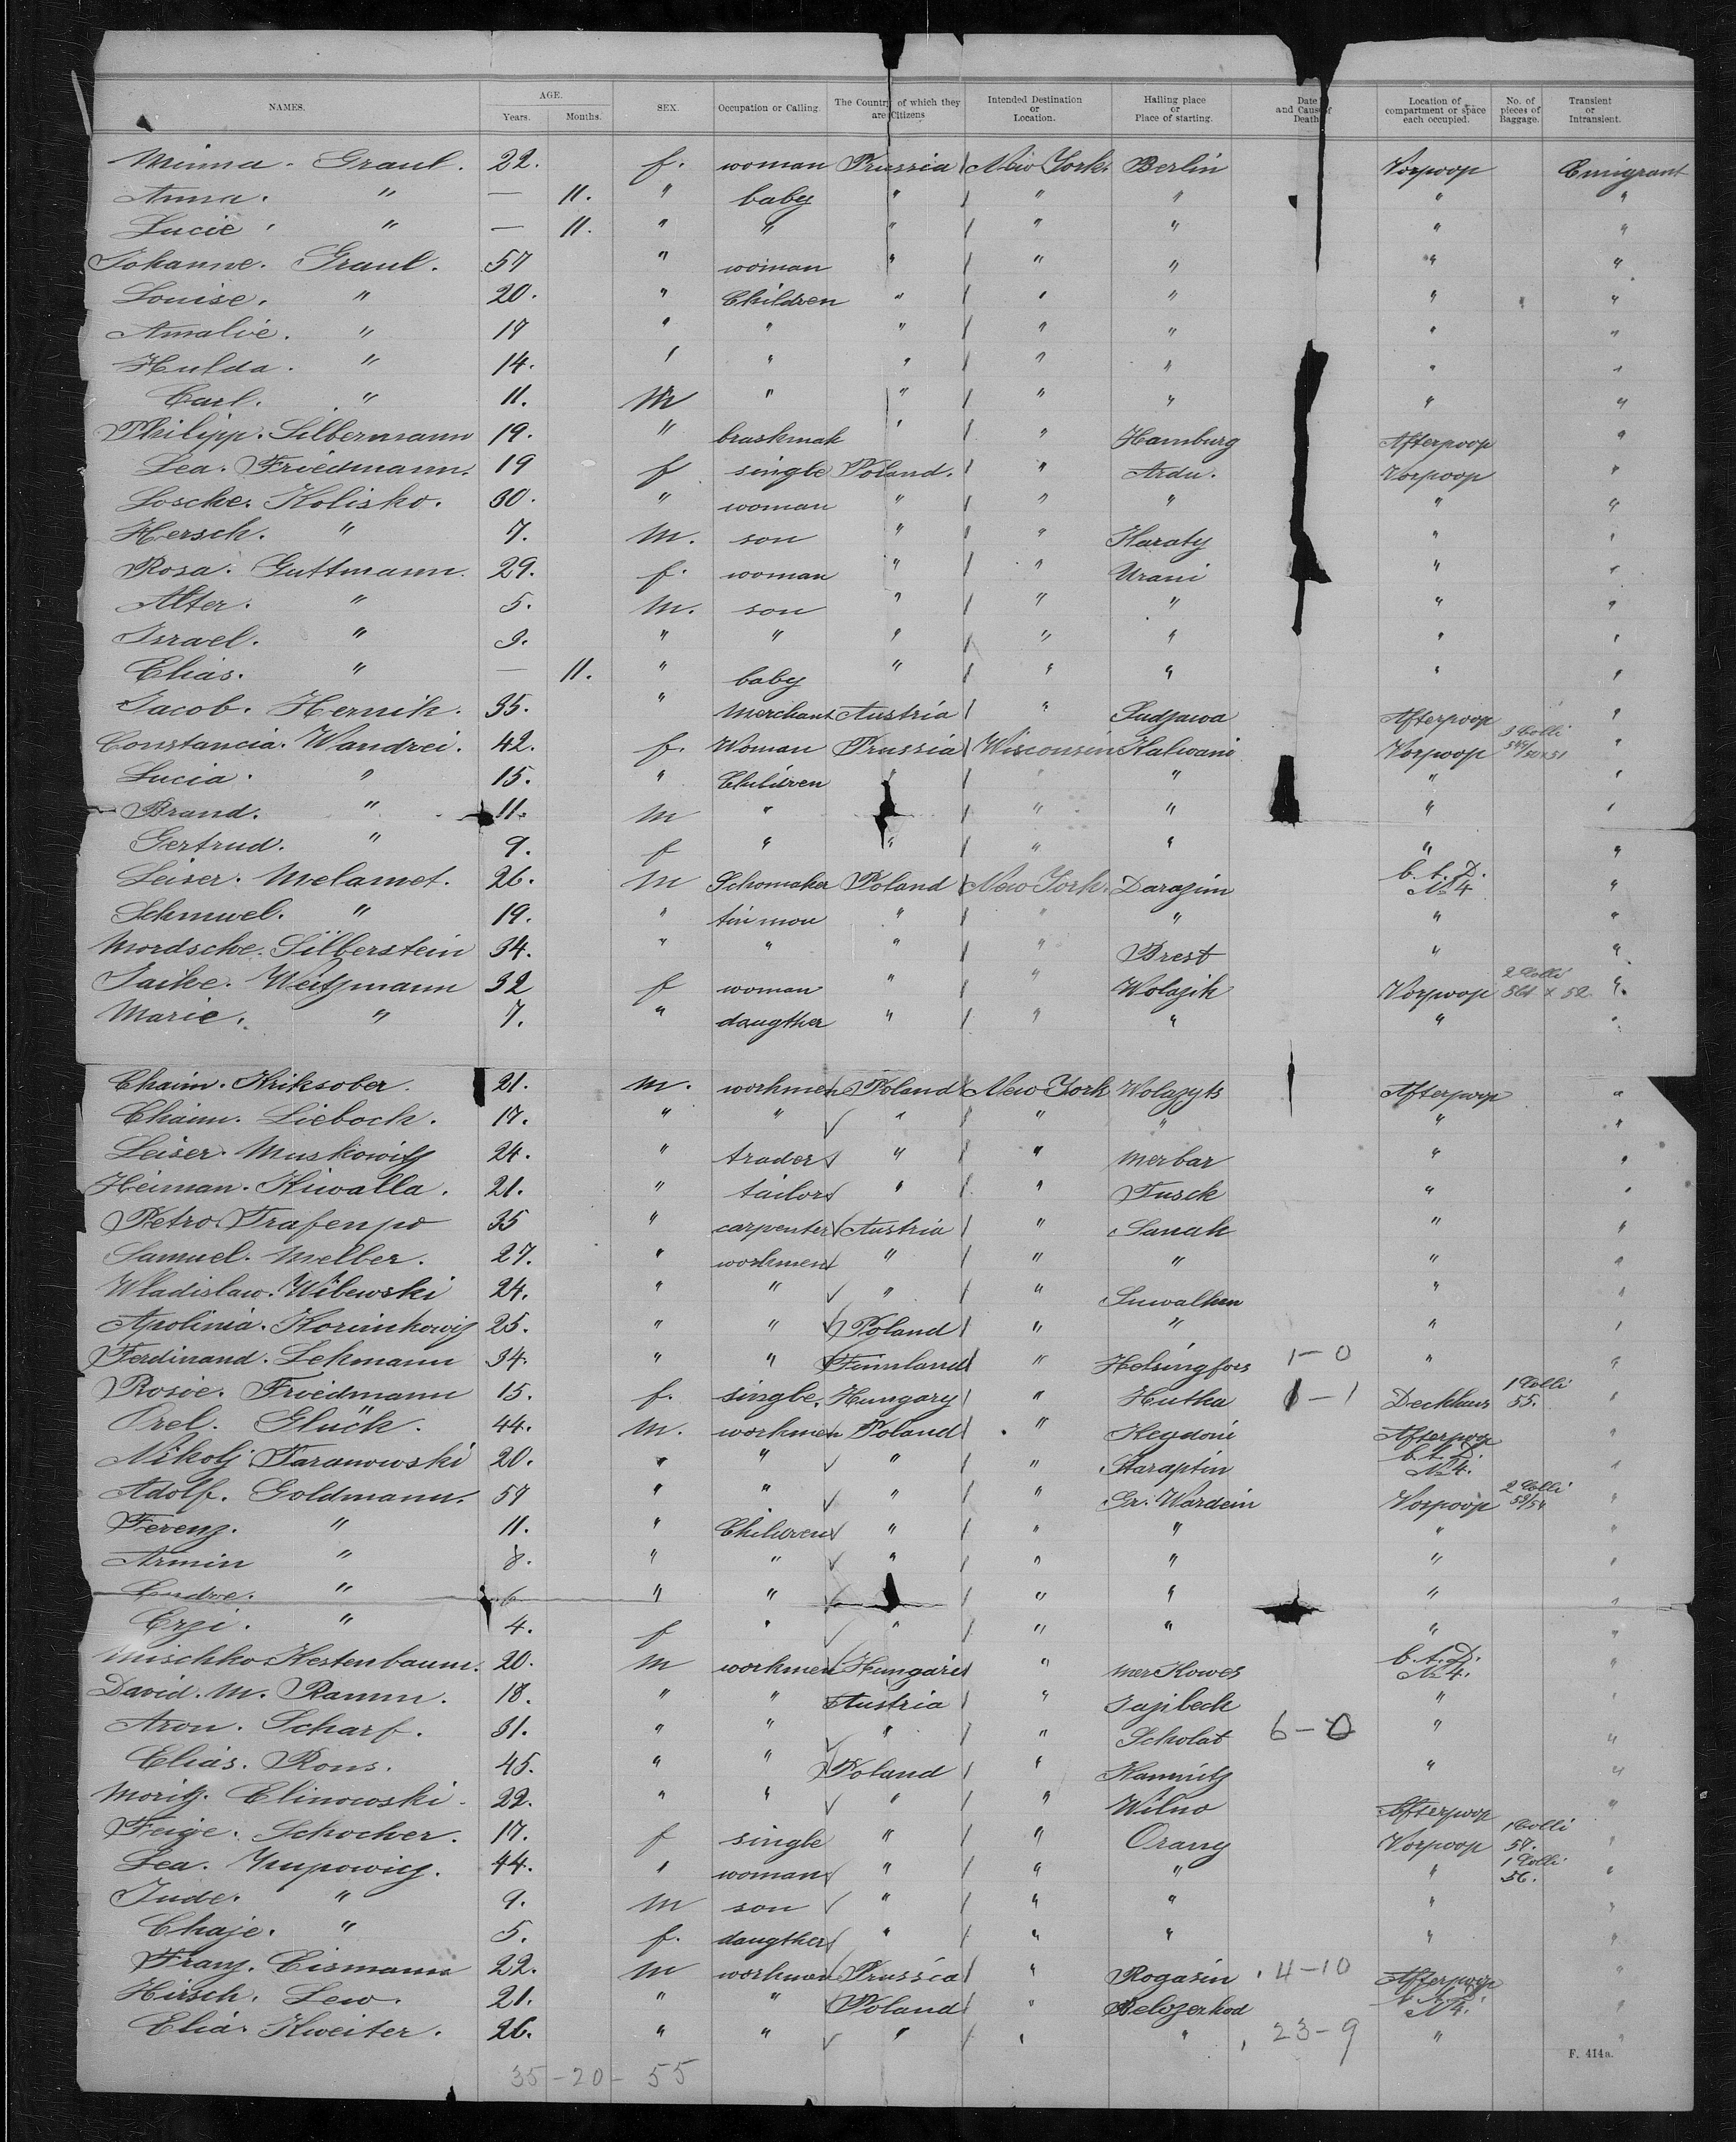 NAMES. AGE. Years. Months. SEX. Occupation or Calling. The Country of which they are Citizens Intended Destination or Location. Hailing place or Place of starting. Date and Cause of Death Location of compartment or space each occupied. No. of pieces of Baggage. Transient or Intransient.
Minna. Graul. 22. f. woman Prussia New York. Berlin Vorpoop Emigrant
Anna. " — 11. " baby " " " " "
Lucie. " — 11. " " " " " " "
Johanne. Graul. 57 " woman " " " " "
Louise. " 20. " Children " " " " "
Amalie. " 17 " " " " " " "
Hulda. " 14. " " " " " " "
Carl. " 11. M " " " " " "
Philipp. Silbermann 19. " " " Hamburg Afterpoop "
Lea. Friedmann. 19 f single Poland. " Ardu. Vorpoop "
Losche. Kolisko. 30. " woman " " " " "
Hersch. " 7. M. son " " Karaty " "
Rosa. Guttmann. 29. f. woman " " Urani " "
Alter. " 5. M. son " " " " "
Israel. " 3. " " " " " " "
Elias. " — 11. " baby " " " " "
Jacob. Hernik. 35. " Merchant Austria " Afterpoop "
Constancia. Wandrei. 42. f. Woman Prussia Wisconsin Kalwani Vorpoop 3 Colli "
Lucia. " 15. " Children " " " " "
Brand. " 11. M " " " " " "
Gertrud. " 9. f " " " " " "
Leiser. Melamet. 26. M Schomaker Poland New York. Darazim No 4 "
Schmwel. " 19. " tin mon " " " " "
Mordsche. Silberstein 34. " " " " Brest " "
Saike. Weitzmann 32 f woman " " Wolazik Vorpoop 2 Colli "
Marie. " 7. " daugther " " " " "
Chaim. Kriksober. 21. M. workmen Poland New York Wolazyts Afterpoop "
Chaim. Liebock. 17. " " " " " " "
Leiser. Muskowitz 24. " trader " " Merbar " "
Heiman. Kiwalla. 21. " tailor " " Tusck " "
Petro. Trafenpo 35 " carpenter Austria " Sanah " "
Samuel. Melber. 27. " workmen " " " " "
Wladislaw. Wilewski 24. " " " " Suwalken " "
Apolinia. Korinkowiz 25. " " Poland " " " "
Ferdinand. Lehmann 34. " " Finnland " Helsingfors 1-0 " "
Rosie. Friedmann 15. f. single. Hungary " Hutka 0-1 Deckhaus 1 Colli 55. "
Orel. Glück. 44. M. workmen Poland " Heydoni Afterpoop "
Nikolj Taranowski 20. " " " " Staraptin No 4. "
Adolf. Goldmann. 57 " " " " Gr. Wardein Vorpoop 2 Colli 53/54 "
Ferenz. " 11. " Children " " " " "
Armin " 8. " " " " " " "
Endre. " 6 " " " " " " "
Erzi. " 4. f " " " " " "
Mischko Kestenbaum. 20. M workmen Hungari " No 4. "
David. M. Ramm. 18. " " Austria " Sajibeck " "
Aron. Scharf. 31. " " " " Scholat 6-0 " "
Elias. Rons. 45. " " Poland " Kamnitz " "
Moritz. Elinowski. 22. " " " " Wilno Afterpoop "
Feige. Schocher. 17. f single " " Orany Vorpoop 1 Colli 57. "
Lea. 44. " woman " " " " 1 Colli 56. "
Jude. " 9. M son " " " " "
Chaje. " 5. f. daugther " " " " "
Franz. Eismann 22. M workmen Prussia " Rogasin 4-10 Afterpoop "
Hirsch. Lew. 21. " " Poland " Belozerkod No 4. "
Elia. Kweiter. 26. " " " " " 23-9 " "
35-20-55
F. 414a.